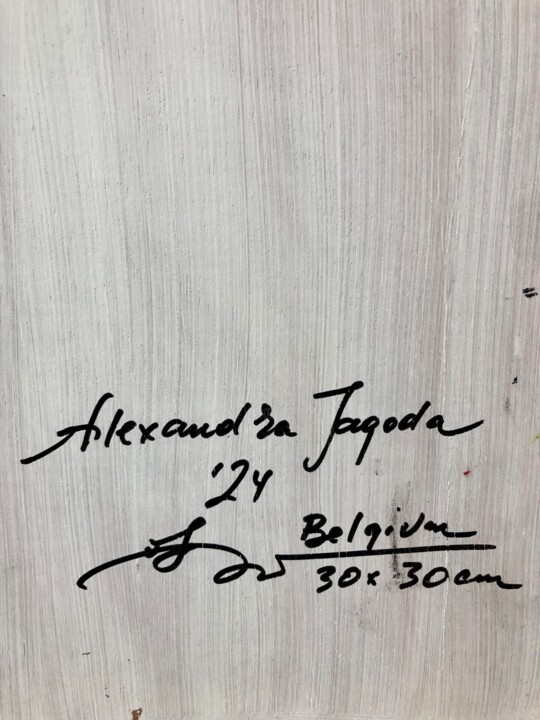 Alexandra Jagoda
'24
Belgium
30x30cm